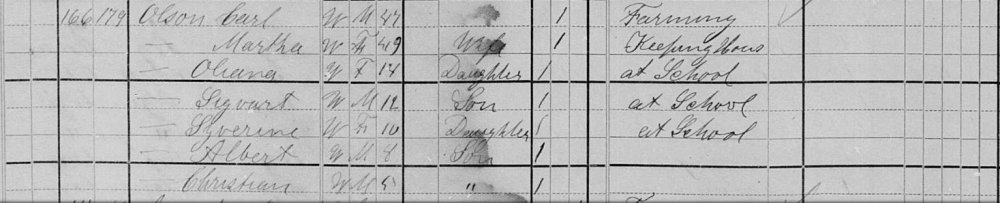 166 179 Olson Carl W M 47 1 Farming
— Martha W F 49 Wife 1 Keeping Hous
— Oliana W F 14 Daughter 1 at School
— Sigvart W M 12 Son 1 at School
— Syverine W F 10 Daughter 1 at School
— Albert W M 8 Son 1
Christian W M 5 " 1